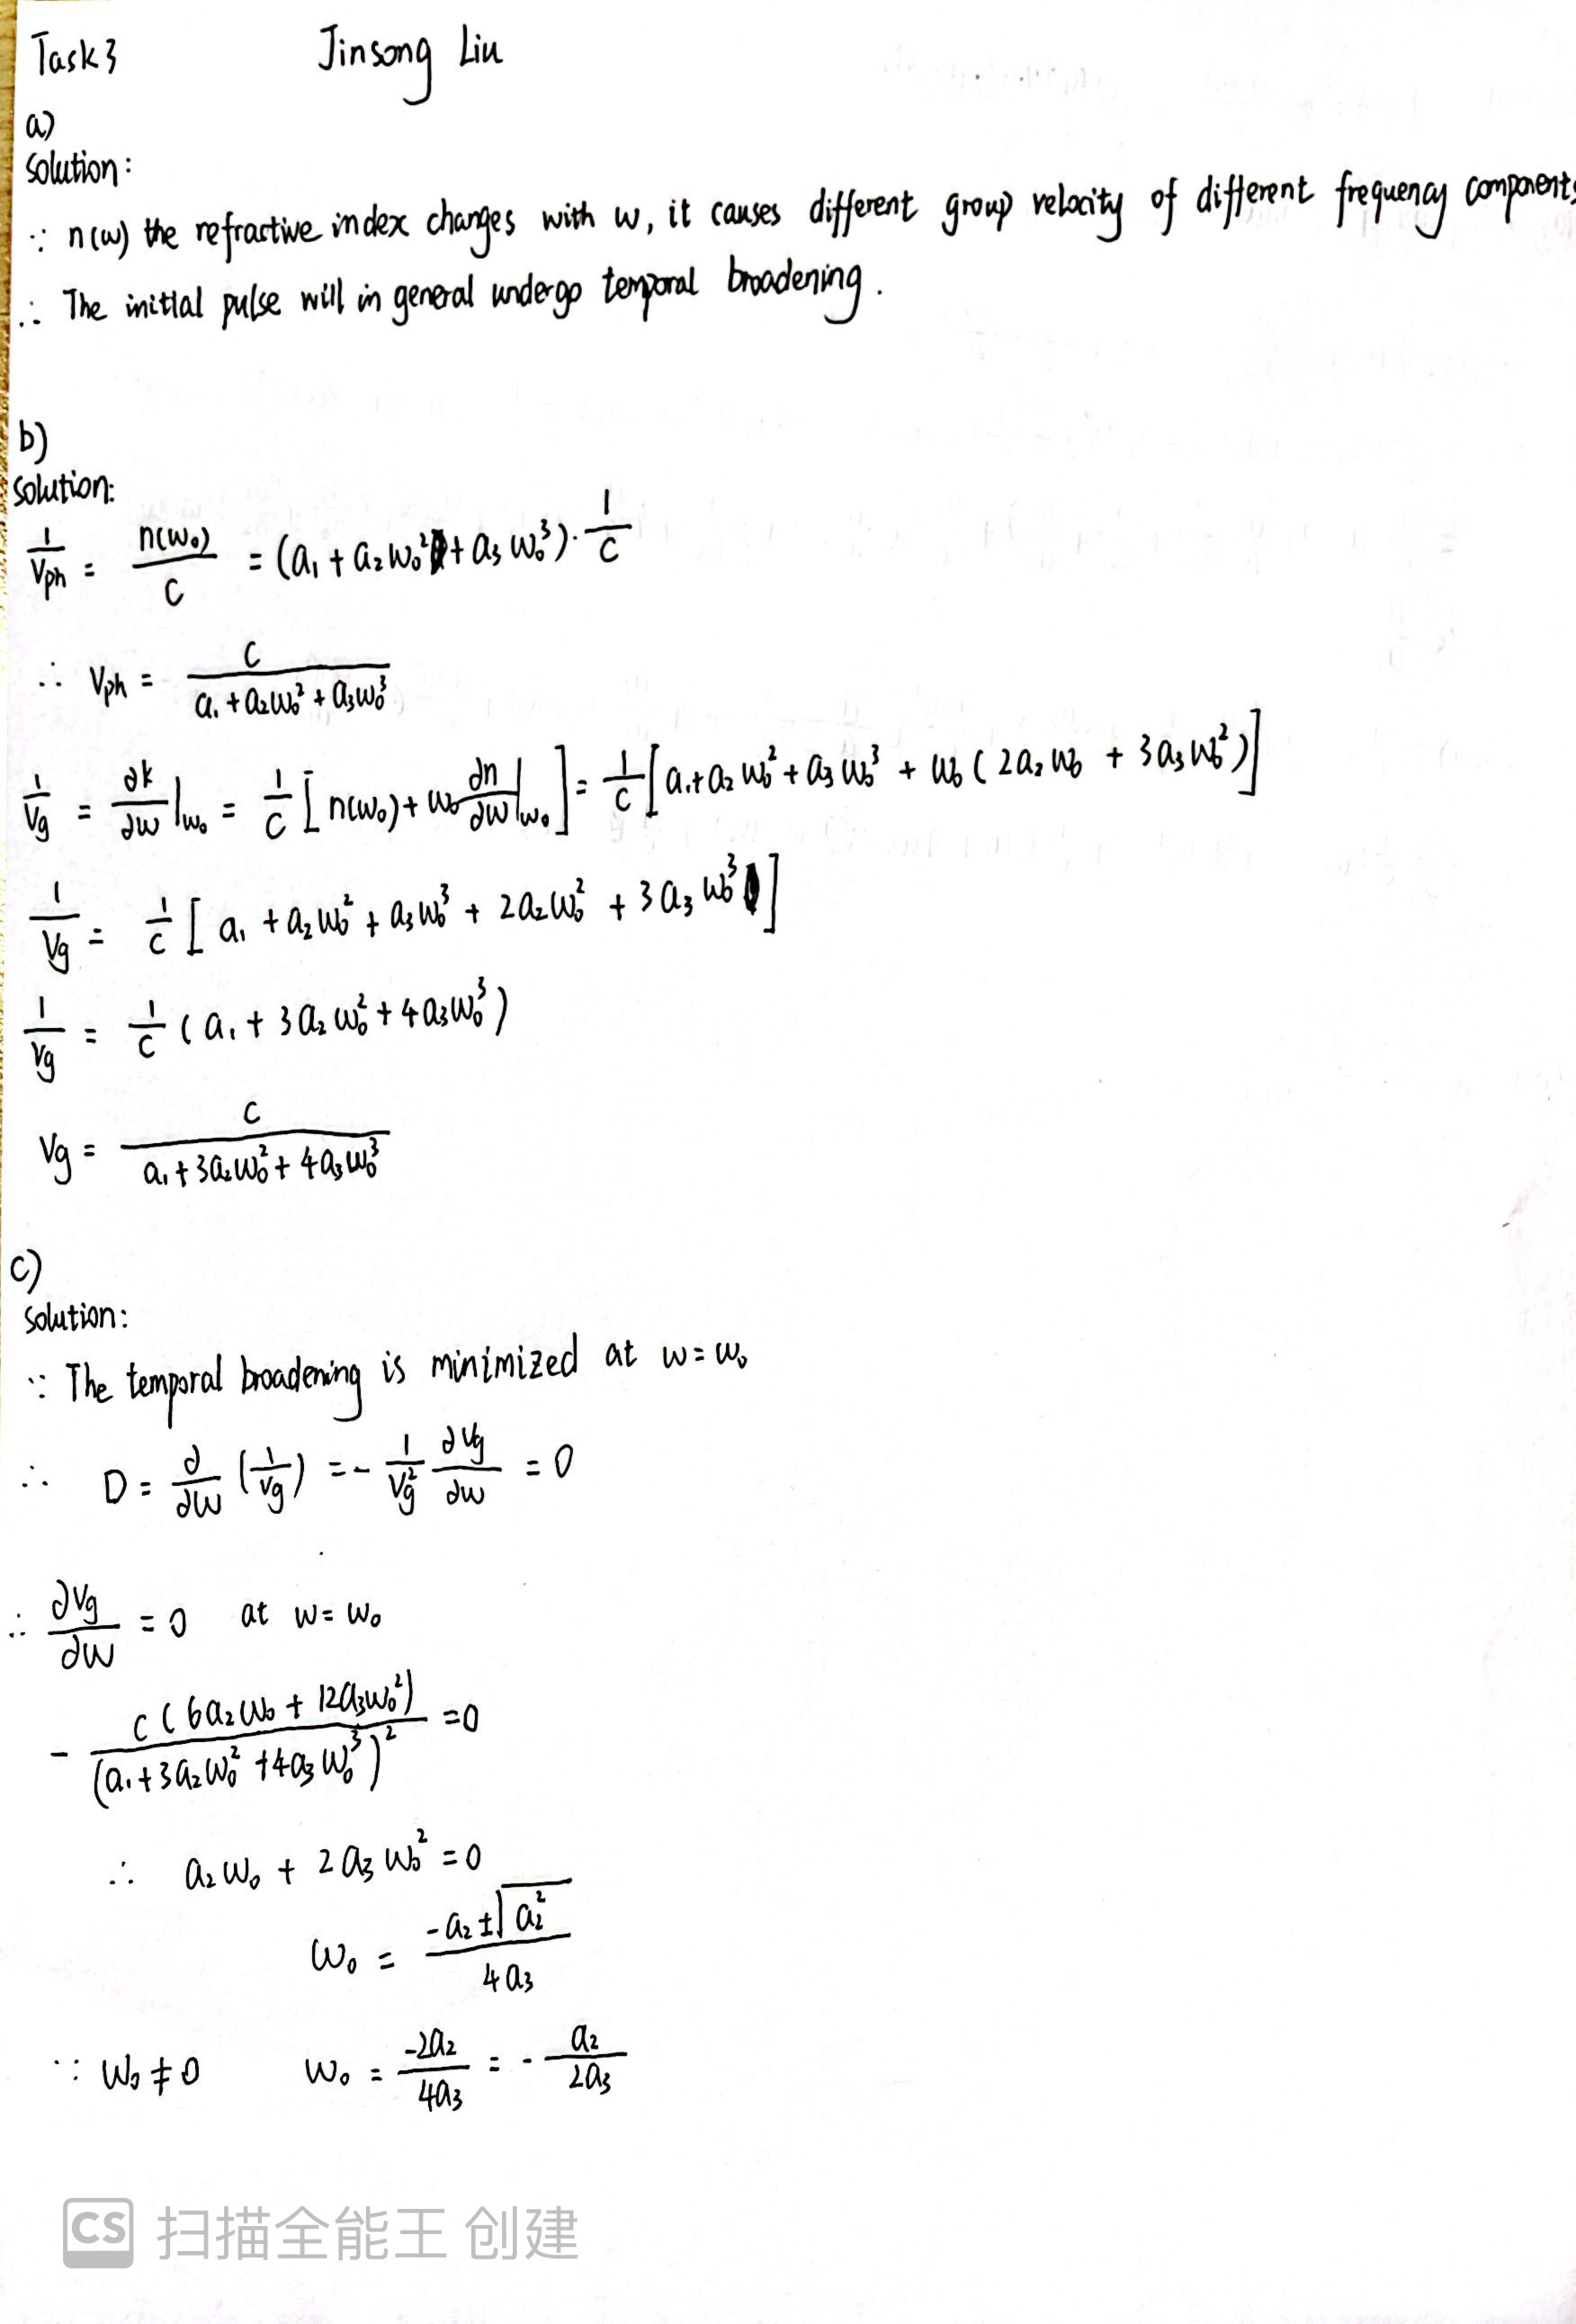 Task3 Jinsong Liu
a)
Solution:
∵ n(ω) the refractive index changes with ω, it causes different group velocity of different frequency components
∴ The initial pulse will in general undergo temporal broadening.
b)
Solution:
1/Vph = n(ω₀)/C = (a₁ + a₂ω₀² + a₃ω₀³)·1/C
∴ Vph = C/(a₁ + a₂ω₀² + a₃ω₀³)
1/Vg = ∂k/∂ω|ω₀ = 1/C [n(ω₀) + ω₀ ∂n/∂ω|ω₀] = 1/C [a₁ + a₂ω₀² + a₃ω₀³ + ω₀(2a₂ω₀ + 3a₃ω₀²)]
1/Vg = 1/C [a₁ + a₂ω₀² + a₃ω₀³ + 2a₂ω₀² + 3a₃ω₀³]
1/Vg = 1/C (a₁ + 3a₂ω₀² + 4a₃ω₀³)
Vg = C/(a₁ + 3a₂ω₀² + 4a₃ω₀³)
c)
Solution:
∵ The temporal broadening is minimized at ω = ω₀
∴ D = ∂/∂ω (1/Vg) = - 1/Vg² ∂Vg/∂ω = 0
∴ ∂Vg/∂ω = 0 at ω = ω₀
- C(6a₂ω₀ + 12a₃ω₀²)/(a₁ + 3a₂ω₀² + 4a₃ω₀³)² = 0
∴ a₂ω₀ + 2a₃ω₀² = 0
ω₀ = (-a₂ ± √a₂²)/4a₃
∵ ω₀ ≠ 0 ω₀ = -2a₂/4a₃ = - a₂/2a₃
CS 扫描全能王 创建